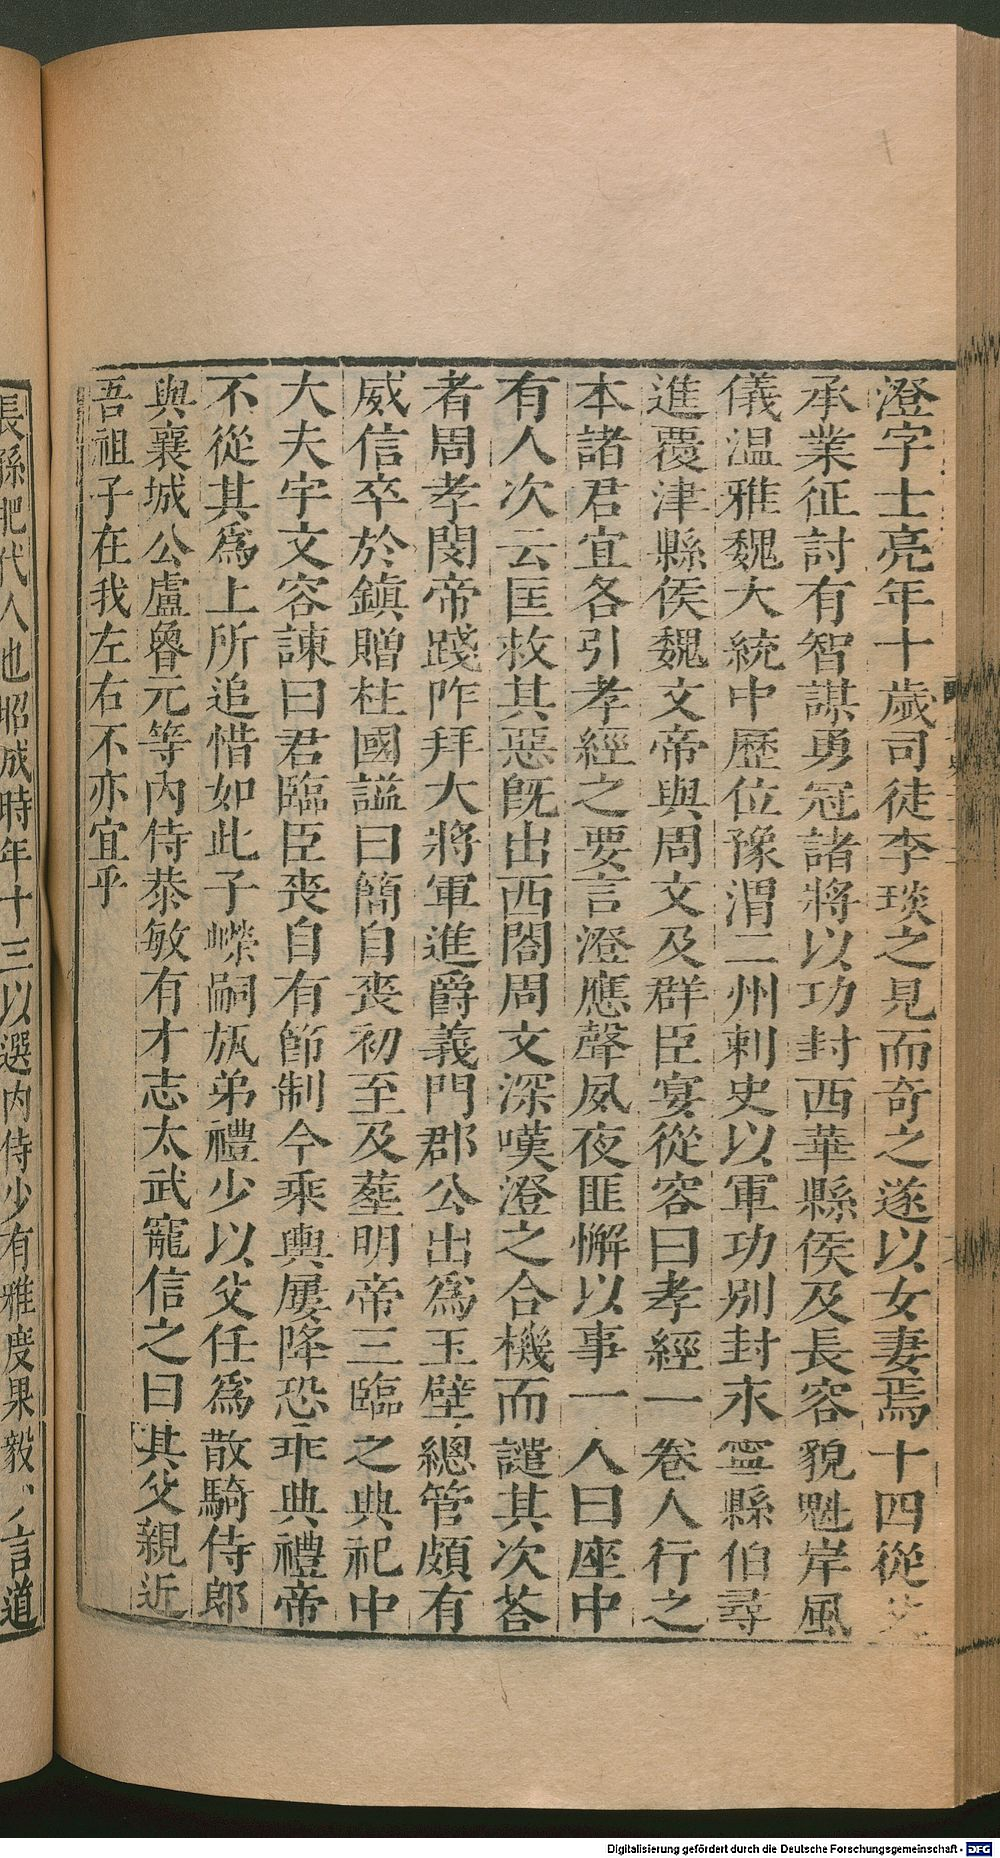 澄字士亮年十歲司徒李琰之見而奇之遂以女妻焉十四從父
承業征討有智謀勇冠諸將以功封西華縣侯及長容貌魁岸風
儀温雅魏大統中歷位豫渭二州刺史以軍功別封永寧縣伯尋
進覆津縣侯魏文帝與周文及群臣宴從容曰孝經一卷人行之
本諸君宜各引孝經之要言澄應聲夙夜匪懈以事一人曰座中
有人次云匡救其惡旣出西閤周文深嘆澄之合機而譴其次荅
者周孝閔帝踐阼拜大將軍進爵義門郡公出爲玉壁總管頗有
威信卒於鎮贈柱國謚曰簡自喪初至及塟明帝三臨之典祀中
大夫宇文容諫曰君臨臣喪自有節制今乘輿屢降恐乖典禮帝
不從其爲上所追惜如此子嶸嗣旊弟禮少以父任爲散騎侍郎
與襄城公盧魯元等內侍恭敏有才志太武寵信之曰其父親近
吾祖子在我左右不亦宜乎
長孫肥代人也昭成時年十三以選内侍少有雅度果毅少言道
Digitalisierung gefördert durch die Deutsche Forschungsgemeinschaft - DFG